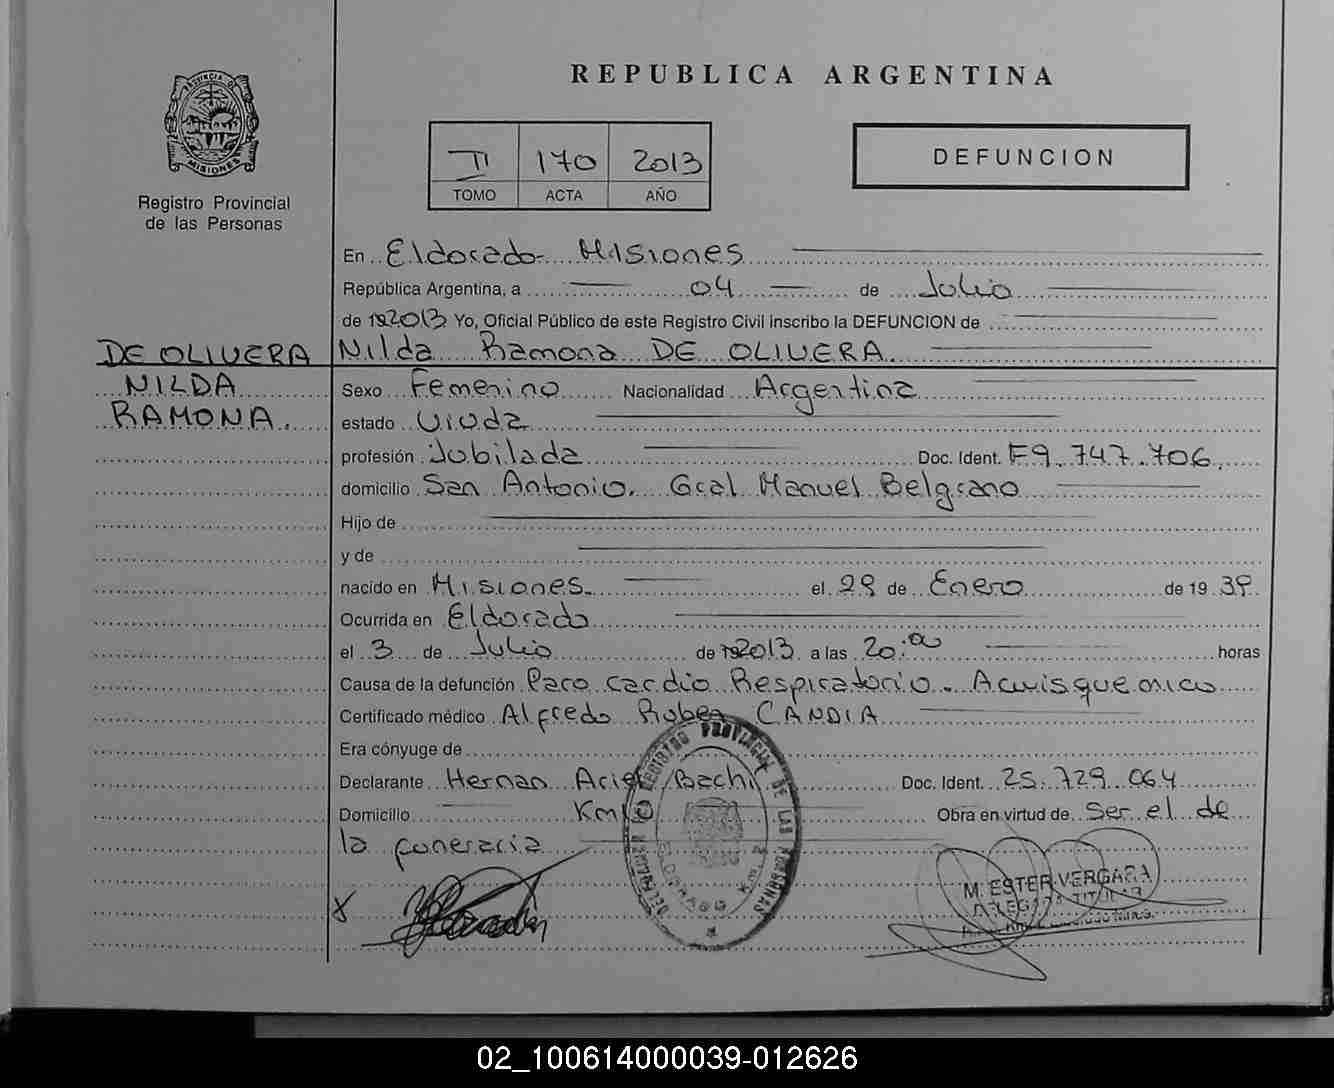 REPUBLICA ARGENTINA
PROVINCIA DE MISIONES
Registro Provincial
de las Personas
II 170 2013
TOMO ACTA AÑO
DEFUNCION
En Eldorado- Misiones
República Argentina, a 04 de Julio
de 2013 Yo, Oficial Público de este Registro Civil inscribo la DEFUNCION de
DE OLIVERA
NILDA
RAMONA.
Nilda Ramona DE OLIVERA.
Sexo Femenino Nacionalidad Argentina
estado Viuda
profesión Jubilada Doc. Ident. F9.747.706.
domicilio San Antonio. Gral Manuel Belgrano
Hijo de
y de
nacido en Misiones. el 29 de Enero de 19 39.
Ocurrida en Eldorado
el 3 de Julio de 2013 a las 20:00 horas
Causa de la defunción Paro cardio Respiratorio.
Certificado médico Alfredo Ruben CANDIA
Era cónyuge de
Declarante Hernan Ariel Bachi Doc. Ident. 25.729.064
Domicilio Km Obra en virtud de Ser el de
la funeraria
REGISTRO PROVINCIAL DE LAS PERSONAS
ELDORADO
M. ESTER VERGARA
DELEGADA TITULAR
02_100614000039-012626